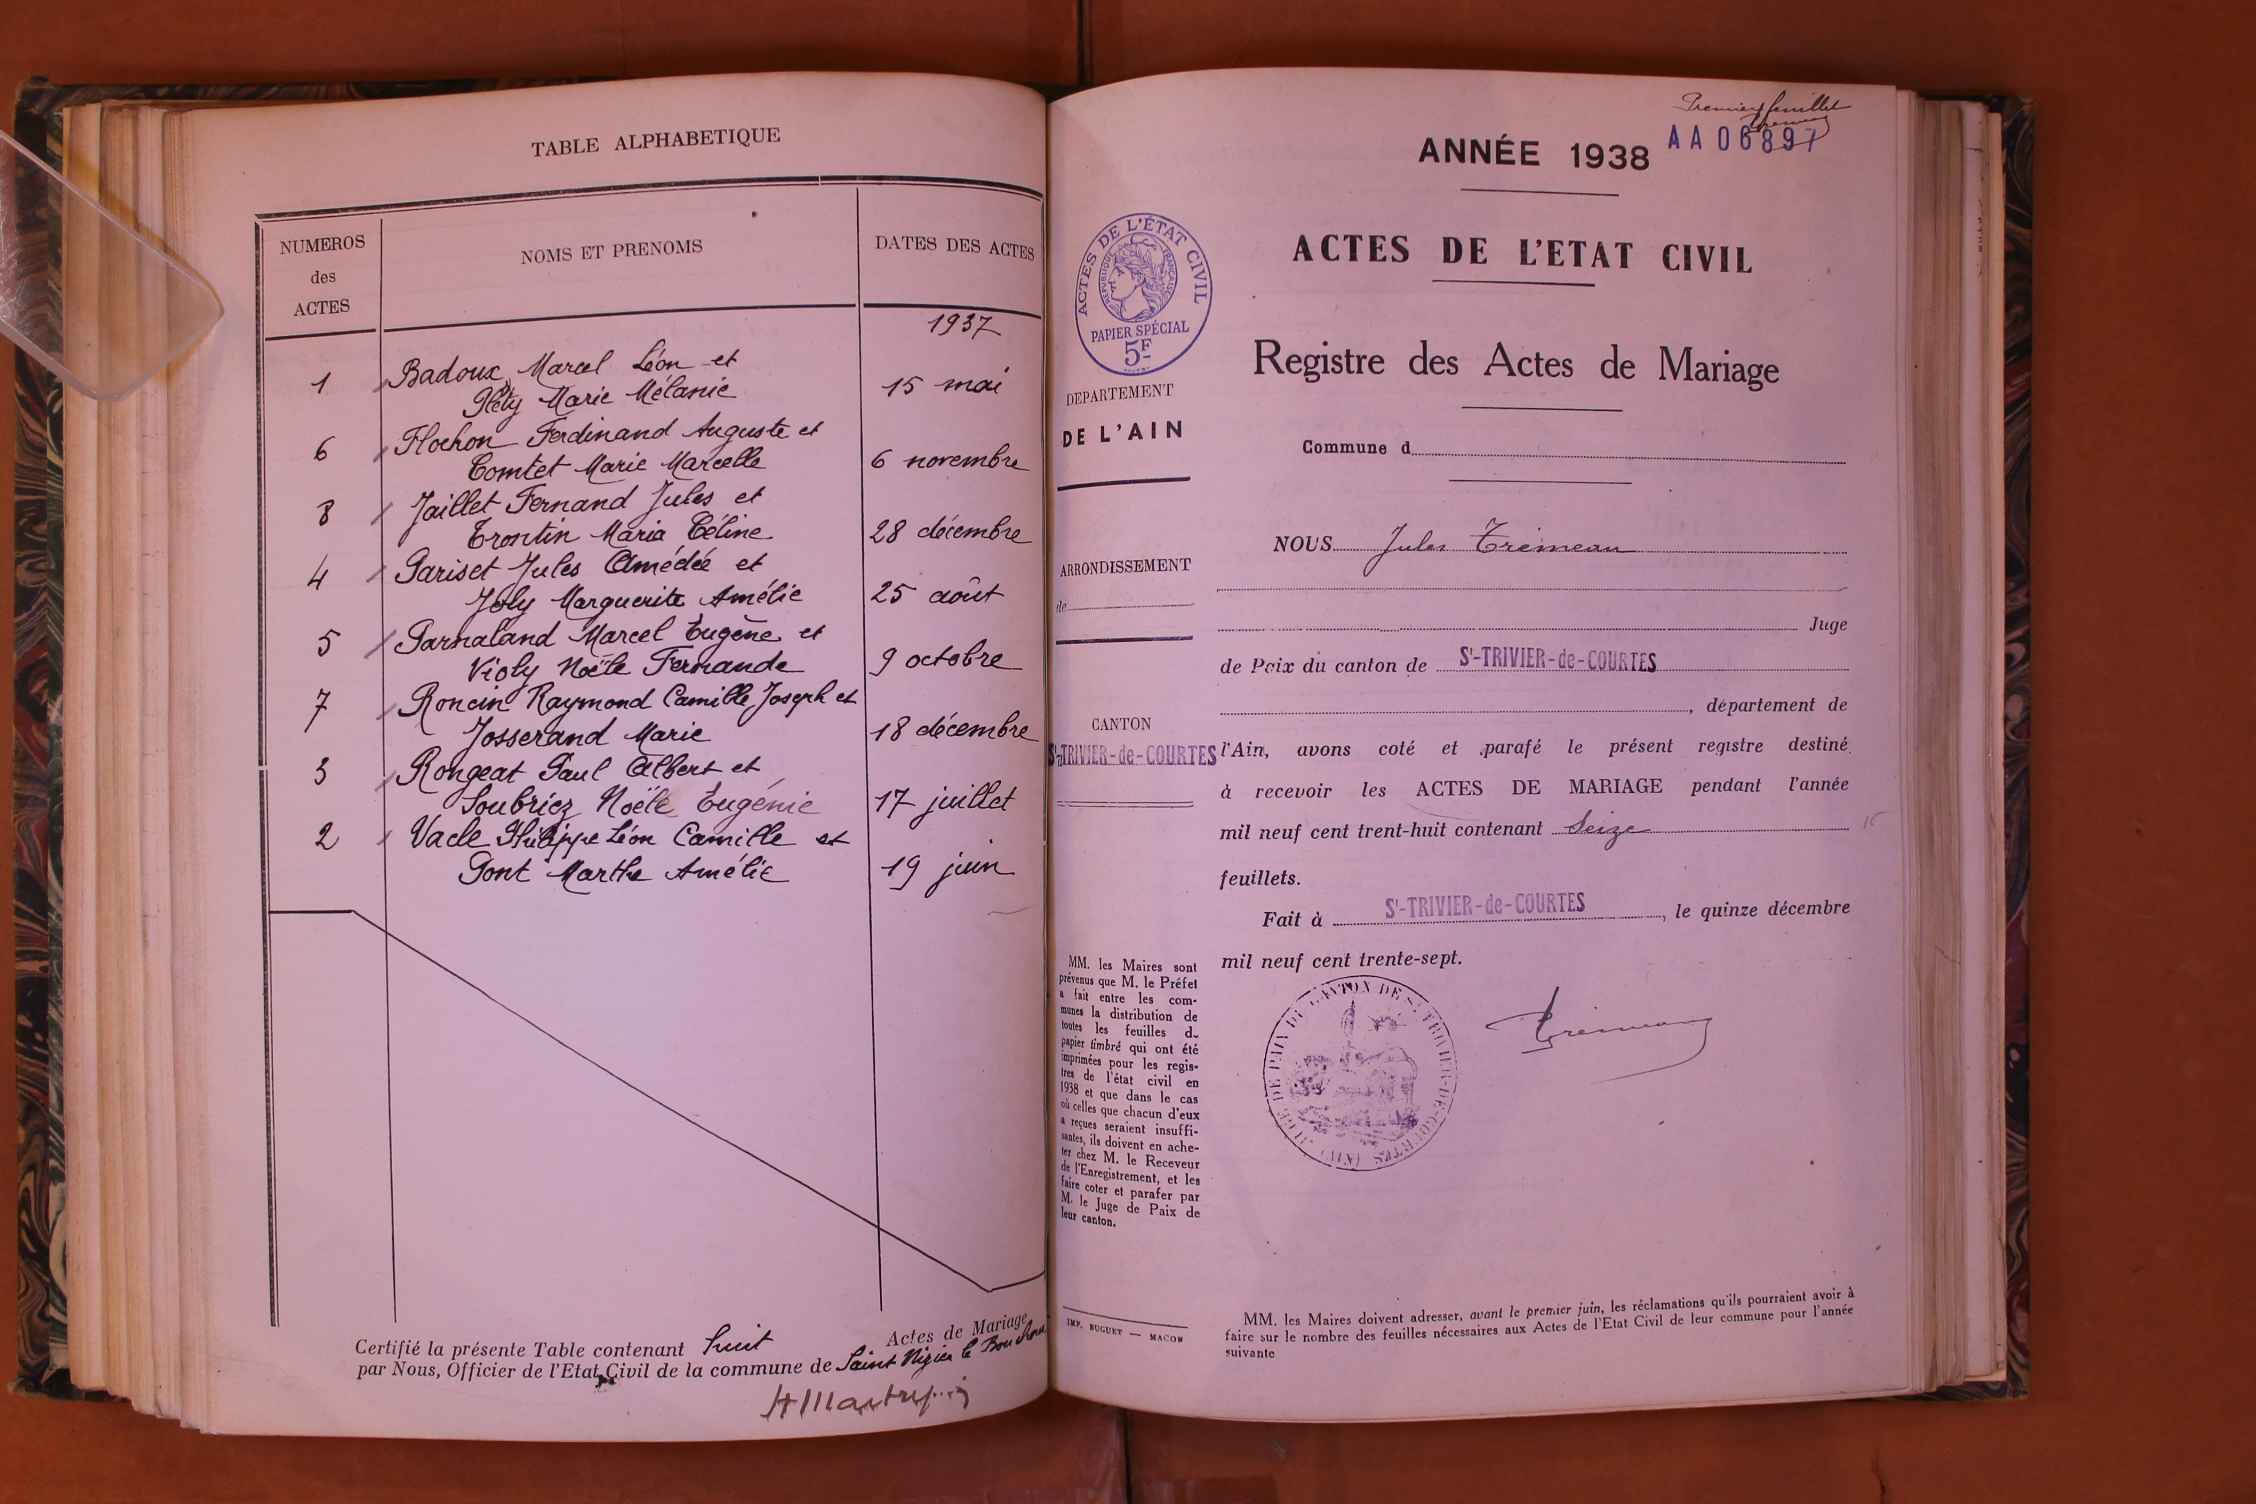 TABLE ALPHABETIQUE
NUMEROS
des
ACTES
NOMS ET PRENOMS
DATES DES ACTES
1937
1 Badoux Marcel Léon et
Pléty Marie Mélanie 15 mai
6 Flochon Ferdinand Auguste et
Comtet Marie Marcelle 6 novembre
8 Jaillet Fernand Jules et
Trontin Maria Céline 28 décembre
4 Pariset Jules Amédée et
Joly Marguerite Amélie 25 août
5 Parnaland Marcel Eugène et
Violy Noële Fernande 9 octobre
7 Roncin Raymond Camille Joseph et
Josserand Marie 18 décembre
3 Rongeat Paul Albert et
Soubriez Noële Eugénie 17 juillet
2 Vacle Philippe Léon Camille et
Pont Marthe Amélie 19 juin
Certifié la présente Table contenant huit Actes de Mariage
par Nous, Officier de l'Etat Civil de la commune de Saint Nizier le Bouchoux
Premier feuillet
AA06897
ANNÉE 1938
ACTES DE L'ETAT CIVIL
Registre des Actes de Mariage
Commune d
ACTES DE L'ÉTAT CIVIL
RÉPUBLIQUE FRANÇAISE
PAPIER SPÉCIAL
5F
DEPARTEMENT
DE L'AIN
ARRONDISSEMENT
de
CANTON
St-TRIVIER-de-COURTES
NOUS Jules Trémeau
Juge
de Paix du canton de St-TRIVIER-de-COURTES
, département de
l'Ain, avons coté et parafé le présent registre destiné
à recevoir les ACTES DE MARIAGE pendant l'année
mil neuf cent trent-huit contenant Seize
feuillets.
Fait à St-TRIVIER-de-COURTES, le quinze décembre
mil neuf cent trente-sept.
JUGE DE PAIX DU CANTON DE St TRIVIER-DE-COURTES (AIN)
Trémeau
MM. les Maires sont
prévenus que M. le Préfet
a fait entre les com-
munes la distribution de
toutes les feuilles d
papier timbré qui ont été
imprimées pour les regis-
tres de l'état civil en
1938 et que dans le cas
où celles que chacun d'eux
a reçues seraient insuffi-
santes, ils doivent en ache-
ter chez M. le Receveur
de l'Enregistrement, et les
faire coter et parafer par
M. le Juge de Paix de
leur canton.
IMP. BUGUET — MACON
MM. les Maires doivent adresser, avant le premier juin, les réclamations qu'ils pourraient avoir à
faire sur le nombre des feuilles nécessaires aux Actes de l'Etat Civil de leur commune pour l'année
suivante